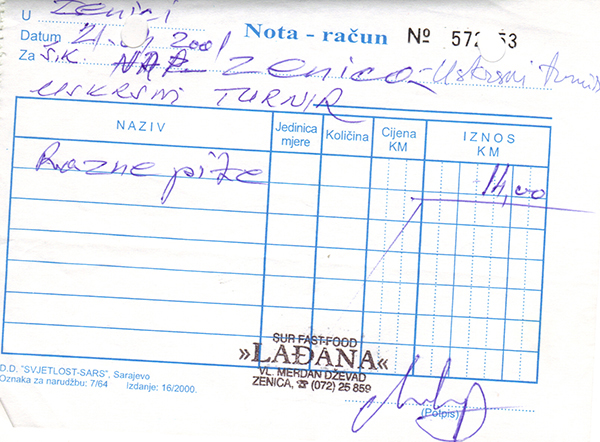 U Zenici
Datum 21. 2001 Nota - račun № 572 53
Za Š.K. NAP Zenica - Uskrsni turnir
USKRSNI TURNIR
NAZIV Jedinica mjere Količina Cijena KM IZNOS KM
Razne pizze 14,00
SUR FAST-FOOD
»LAĐANA«
VL. MERDAN DŽEVAD
ZENICA, ☎ (072) 25 859
D.D. "SVJETLOST-SARS", Sarajevo
Oznaka za narudžbu: 7/64 Izdanje: 16/2000.
(Potpis)